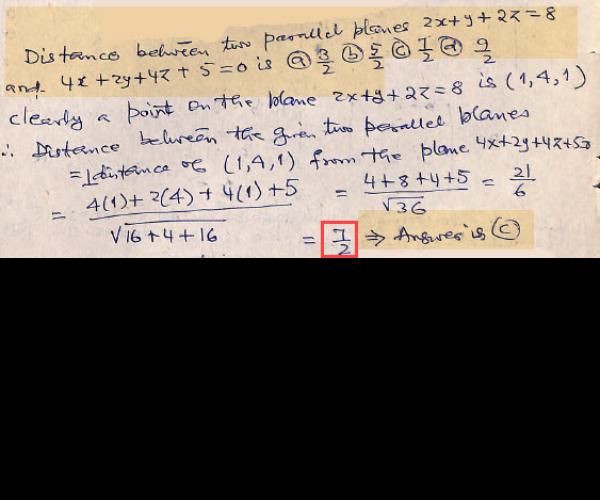 Distance between two parallel planes 2x+y+2z=8
and 4x+2y+4z+5=0 is ⓐ 3/2 ⓑ 5/2 ⓒ 7/2 ⓓ 9/2
clearly a point on the plane 2x+y+2z=8 is (1,4,1)
∴ Distance between the given two parallel planes
=⊥distance of (1,4,1) from the plane 4x+2y+4z+5=0
= (4(1)+2(4)+4(1)+5)/√(16+4+16) = (4+8+4+5)/√36 = 21/6
= 7/2 ⇒ Answer is ⓒ